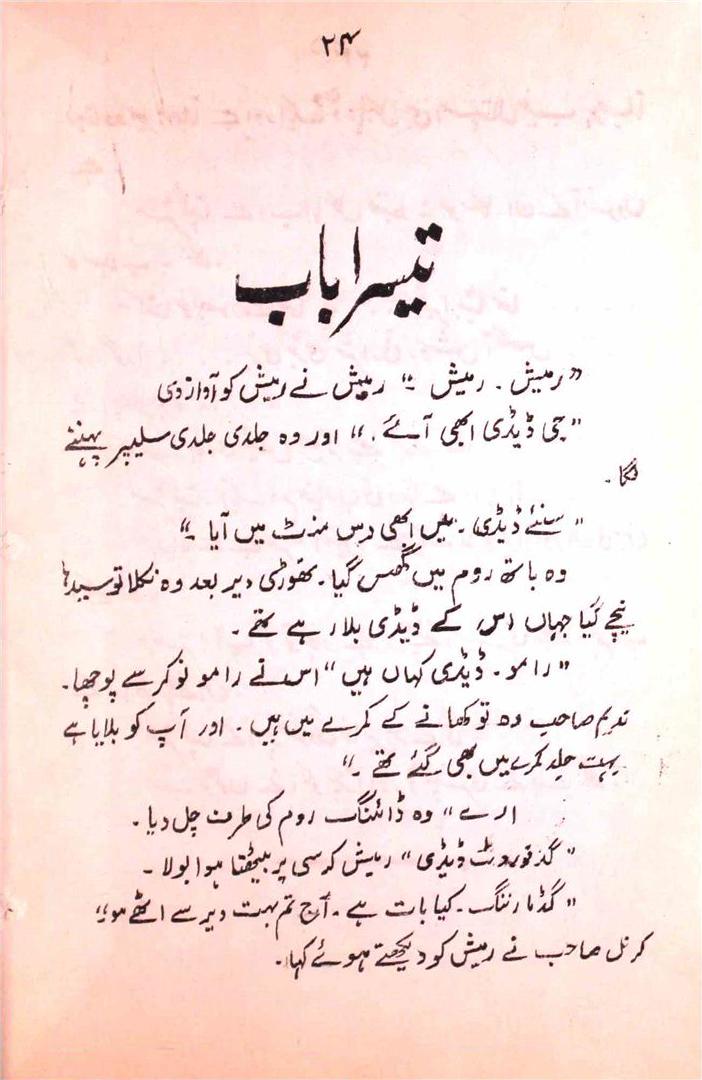 ۲۴
تیسرا باب
"رمیش۔ رمیش ۔" رمیش نے رمیش کو آواز دی
"جی ڈیڈی ابھی آئے ۔" اور وہ جلدی جلدی سلیپر پہننے
لگا۔
"سنئے ڈیڈی۔ میں ابھی دس منٹ میں آیا ۔"
وہ باتھ روم میں گھس گیا۔ تھوڑی دیر بعد وہ نکلا تو سیدھا
نیچے گیا جہاں اس کے ڈیڈی بلا رہے تھے۔
"رامو۔ ڈیڈی کہاں ہیں" اس نے رامو نوکر سے پوچھا۔
ندیم صاحب وہ تو کھانے کے کمرے میں ہیں۔ اور آپ کو بلایا ہے
بہت جلد کمرے میں بھی گئے تھے ۔"
ارے" وہ ڈائننگ روم کی طرف چل دیا۔
"گڈ ڈیڈی" رمیش کرسی پر بیٹھتا ہوا بولا ۔
"گڈ مارننگ۔ کیا بات ہے۔ آج تم بہت دیر سے اٹھے ہو؟"
کرنل صاحب نے رمیش کو دیکھتے ہوئے کہا۔